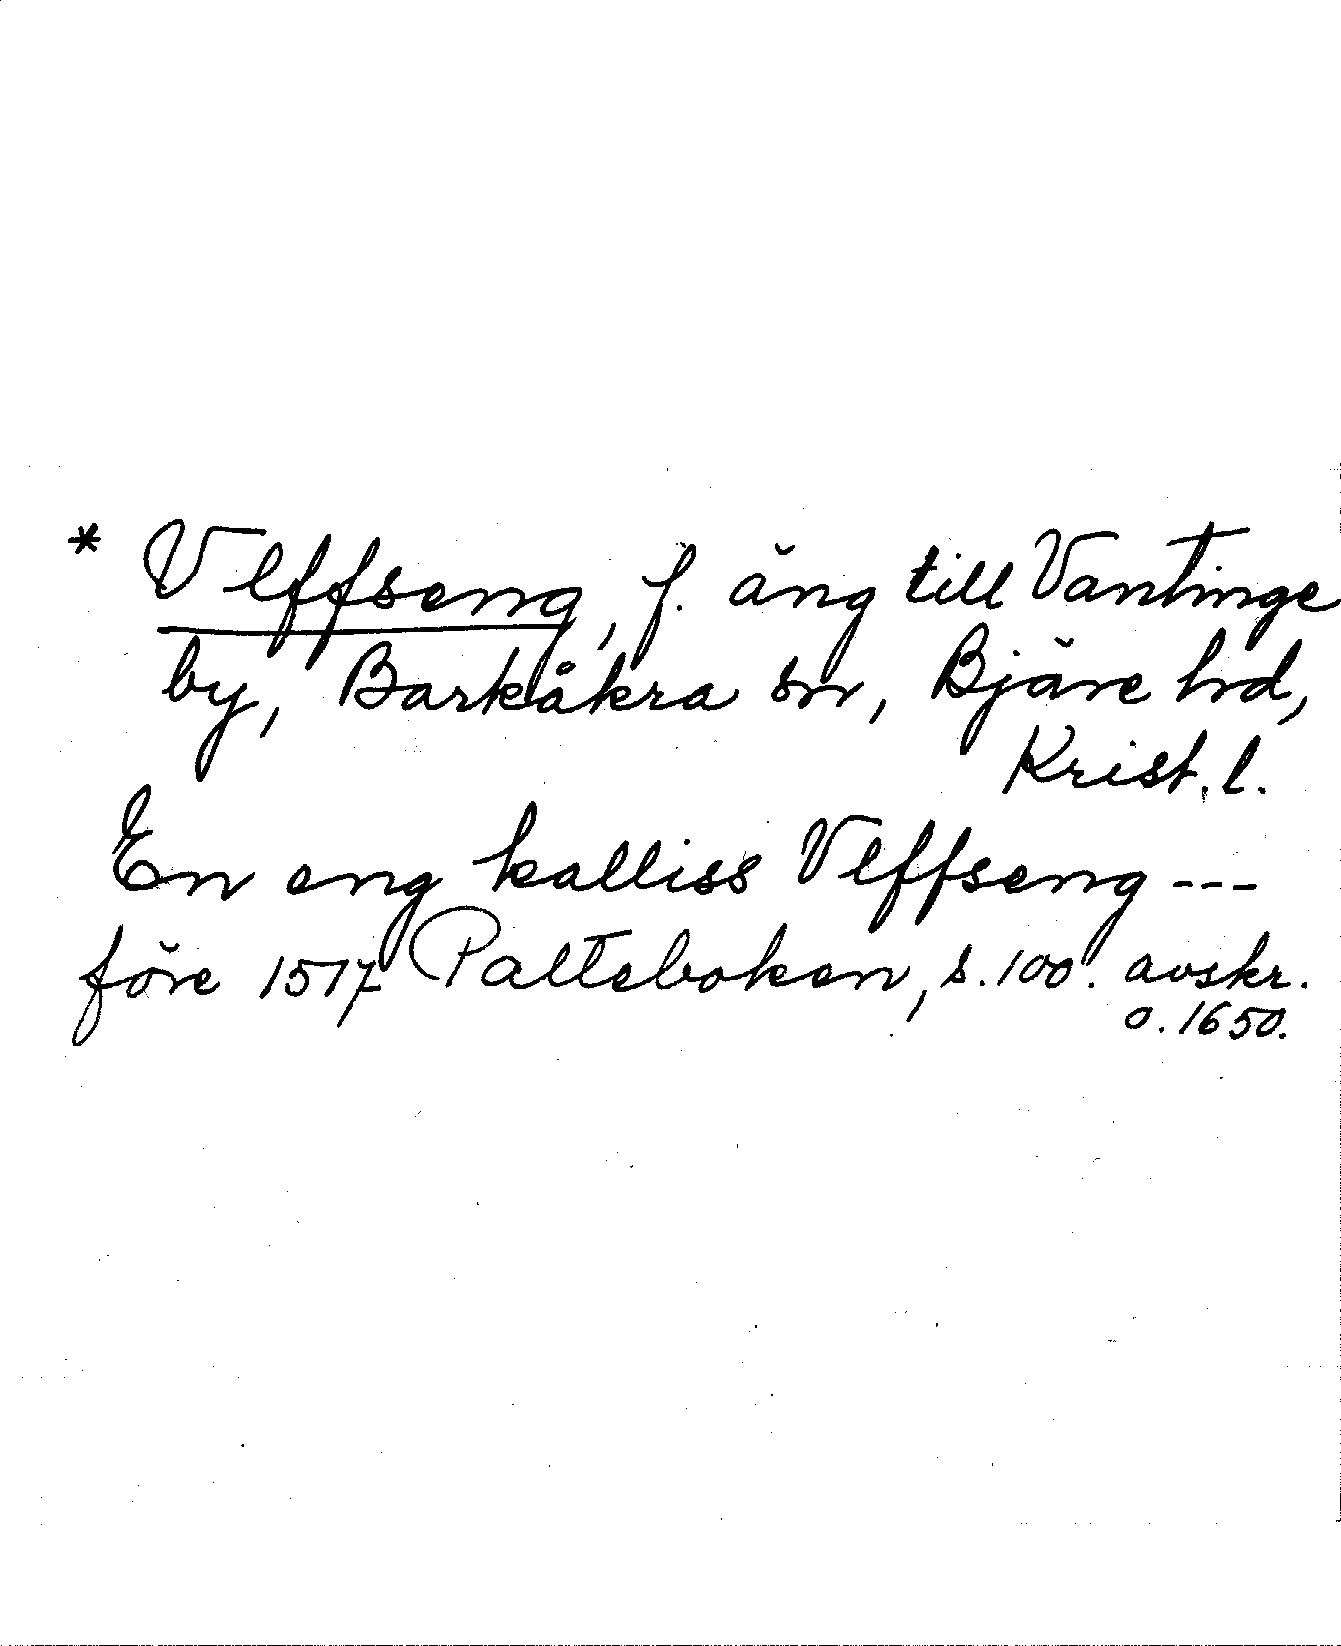 * Vlffseng, f. äng till Vantinge
by, Barkåkra sn, Bjäre hd,
Krist. l.
En eng kalliss Vlffseng ---
före 1517 Palteboken, s. 100. avskr.
o. 1650.